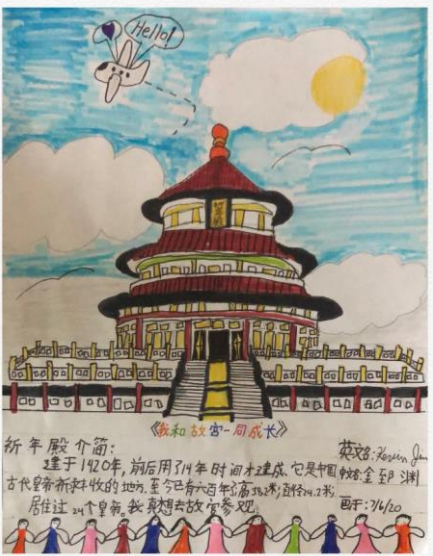 Hello!
《我和故宫一同成长》
祈年殿介简:
建于1420年,前后用了14年时间才建成.它是中国
古代皇帝祈求丰收的地方.至今已有六百年了,高38.2米,直径24.2米,
居住过24个皇帝.我真想去故宫参观.
英文名:
中文名:金郅渊
画于:7/6/20